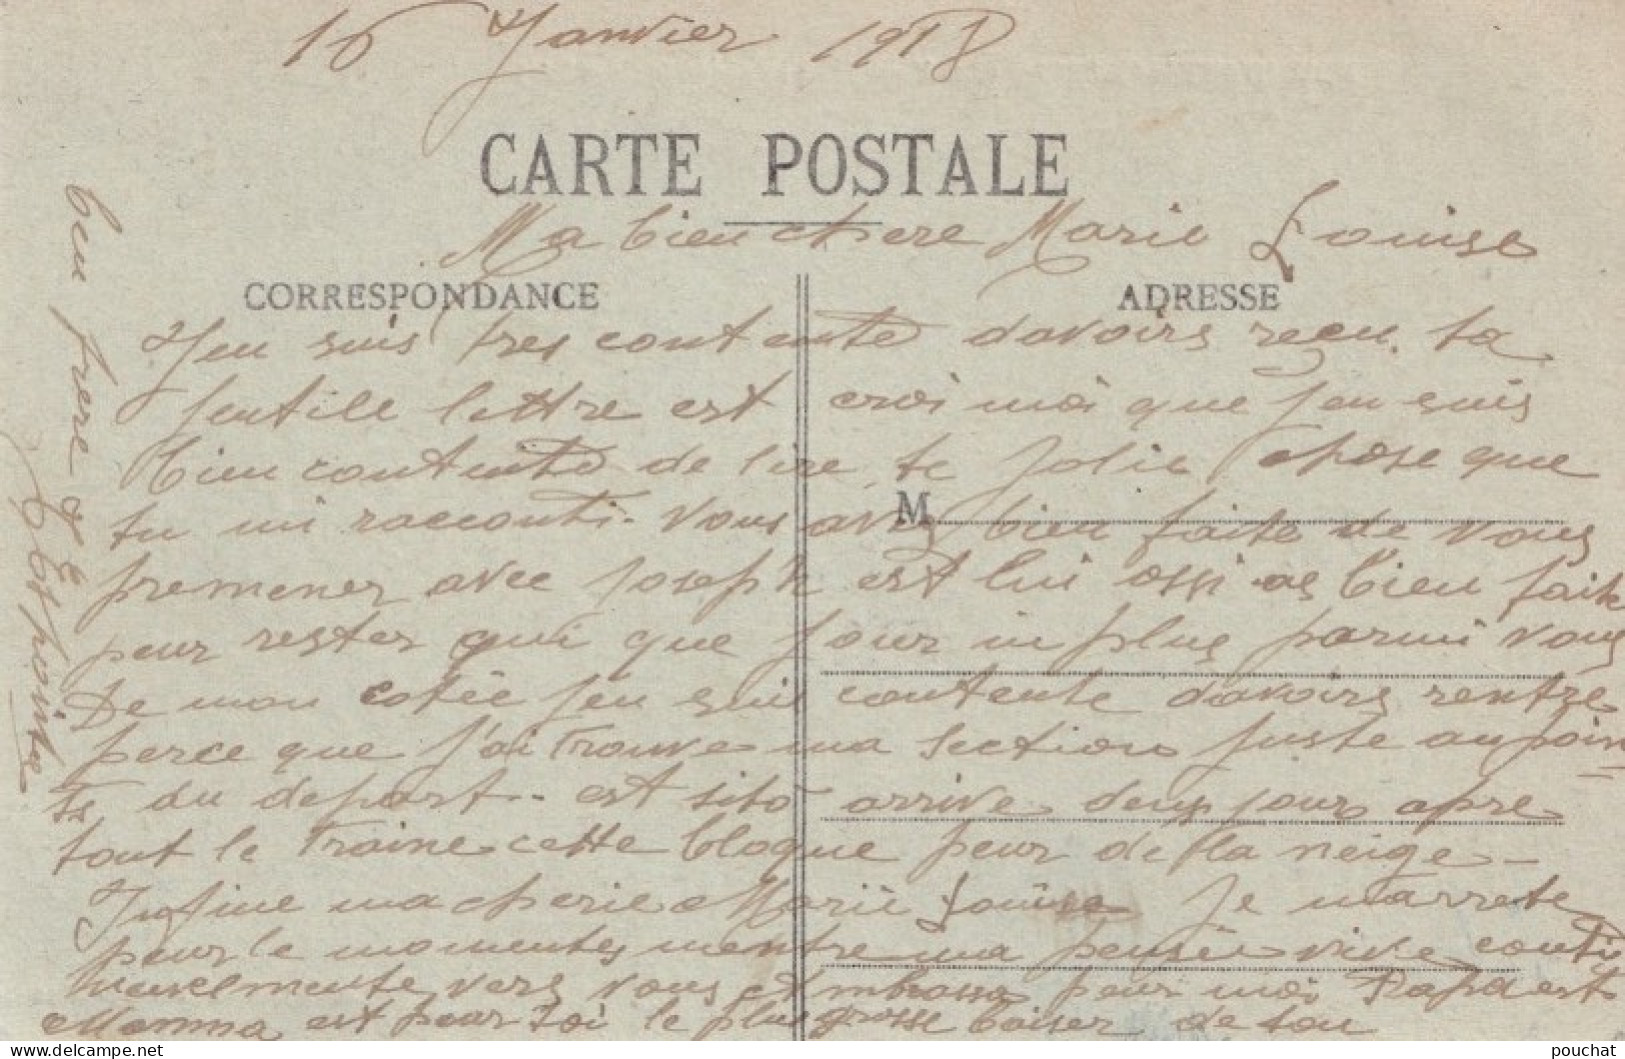 16 Janvier 1918
CARTE POSTALE
Ma bien chere Marie Louise
CORRESPONDANCE
ADRESSE
Jen suis tres contente davoirs recu ta
Jentile lettre est croi moi que jen suis
bien contente de lire te jolie chose que
tu mi racconti. Vous aves bien faite de vous
M
premener avec Joseph est lui ossi as bien faite
pour rester qui que jour in plus parmi vous
De mon cotèe jen suis contente davoirs rentre
perce que j'ai trouve ma section juste au poin=
ts du depart - est sito arrive deux jour apre
tout le traine cette bloque peur de la neige -
Infine ma cherie Marie Louise Je m'arrete
peur le momentes mentre ma pensèe vive conti
nuuelmente vers vous Embrassa peur moi Papa est
Mamma est peur toi le plus grosse baiser de ton
bon frere